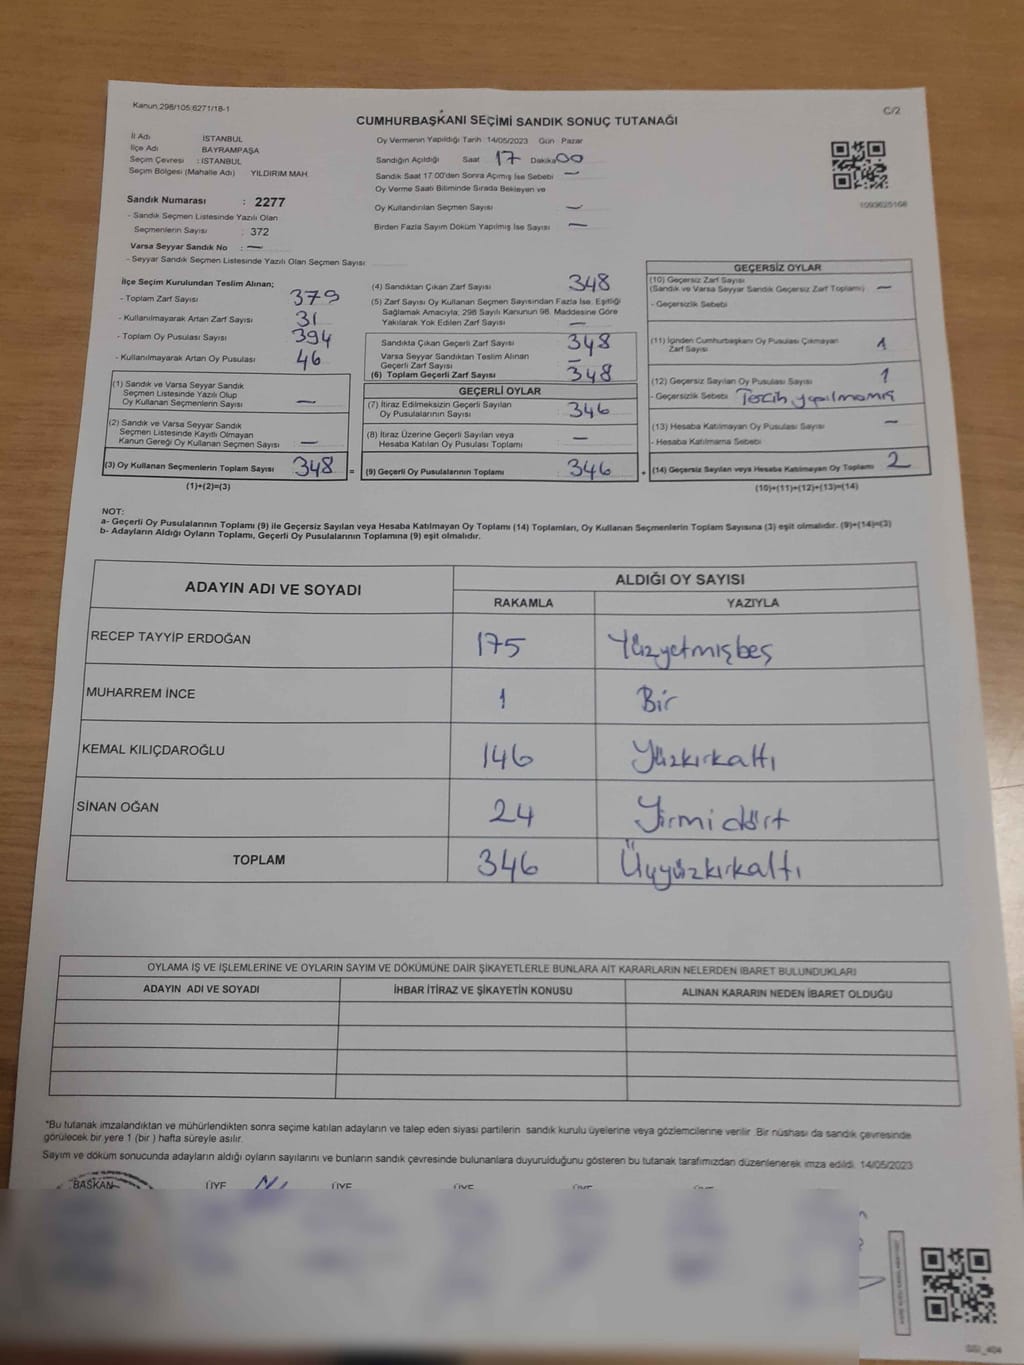 Kanun,298/105,6271/18-1
C/2
CUMHURBAŞKANI SEÇİMİ SANDIK SONUÇ TUTANAĞI
İl Adı İSTANBUL
İlçe Adı BAYRAMPAŞA
Seçim Çevresi : İSTANBUL
Seçim Bölgesi (Mahalle Adı) YILDIRIM MAH.
Sandık Numarası : 2277
- Sandık Seçmen Listesinde Yazılı Olan
Seçmenlerin Sayısı : 372
Varsa Seyyar Sandık No : —
- Seyyar Sandık Seçmen Listesinde Yazılı Olan Seçmen Sayısı
Oy Vermenin Yapıldığı Tarih : 14/05/2023 Gün Pazar
Sandığın Açıldığı Saat 17 Dakika 00
Sandık Saat 17.00'den Sonra Açımış İse Sebebi —
Oy Verme Saati Bitiminde Sırada Bekleyen ve
Oy Kullandırılan Seçmen Sayısı —
Birden Fazla Sayım Döküm Yapılmış İse Sayısı —
1093625168
İlçe Seçim Kurulundan Teslim Alınan;
- Toplam Zarf Sayısı 379
- Kullanılmayarak Artan Zarf Sayısı 31
- Toplam Oy Pusulası Sayısı 394
- Kullanılmayarak Artan Oy Pusulası 46
(1) Sandık ve Varsa Seyyar Sandık
Seçmen Listesinde Yazılı Olup
Oy Kullanan Seçmenlerin Sayısı —
(2) Sandık ve Varsa Seyyar Sandık
Seçmen Listesinde Kayıtlı Olmayan
Kanun Gereği Oy Kullanan Seçmen Sayısı —
(3) Oy Kullanan Seçmenlerin Toplam Sayısı 348 =
(1)+(2)=(3)
(4) Sandıktan Çıkan Zarf Sayısı 348
(5) Zarf Sayısı Oy Kullanan Seçmen Sayısından Fazla İse, Eşitliği
Sağlamak Amacıyla; 298 Sayılı Kanunun 98. Maddesine Göre
Yakılarak Yok Edilen Zarf Sayısı —
Sandıkta Çıkan Geçerli Zarf Sayısı 348
Varsa Seyyar Sandıktan Teslim Alınan
Geçerli Zarf Sayısı —
(6) Toplam Geçerli Zarf Sayısı 348
GEÇERLİ OYLAR
(7) İtiraz Edilmeksizin Geçerli Sayılan
Oy Pusulalarının Sayısı 346
(8) İtiraz Üzerine Geçerli Sayılan veya
Hesaba Katılan Oy Pusulası Toplamı —
(9) Geçerli Oy Pusulalarının Toplamı 346 +
GEÇERSİZ OYLAR
(10) Geçersiz Zarf Sayısı
(Sandık ve Varsa Seyyar Sandık Geçersiz Zarf Toplamı) —
- Geçersizlik Sebebi
(11) İçinden Cumhurbaşkanı Oy Pusulası Çıkmayan
Zarf Sayısı 1
(12) Geçersiz Sayılan Oy Pusulası Sayısı 1
- Geçersizlik Sebebi Tercih yapılmamış
(13) Hesaba Katılmayan Oy Pusulası Sayısı —
- Hesaba Katılmama Sebebi
(14) Geçersiz Sayılan veya Hesaba Katılmayan Oy Toplamı 2
(10)+(11)+(12)+(13)=(14)
NOT:
a- Geçerli Oy Pusulalarının Toplamı (9) ile Geçersiz Sayılan veya Hesaba Katılmayan Oy Toplamı (14) Toplamları, Oy Kullanan Seçmenlerin Toplam Sayısına (3) eşit olmalıdır. (9)+(14)=(3)
b- Adayların Aldığı Oyların Toplamı, Geçerli Oy Pusulalarının Toplamına (9) eşit olmalıdır.
ADAYIN ADI VE SOYADI ALDIĞI OY SAYISI
RAKAMLA YAZIYLA
RECEP TAYYİP ERDOĞAN 175 Yüzyetmişbeş
MUHARREM İNCE 1 Bir
KEMAL KILIÇDAROĞLU 146 Yüzkırkaltı
SİNAN OĞAN 24 Yirmidört
TOPLAM 346 Üçyüzkırkaltı
OYLAMA İŞ VE İŞLEMLERİNE VE OYLARIN SAYIM VE DÖKÜMÜNE DAİR ŞİKAYETLERLE BUNLARA AİT KARARLARIN NELERDEN İBARET BULUNDUKLARI
ADAYIN ADI VE SOYADI İHBAR İTİRAZ VE ŞİKAYETİN KONUSU ALINAN KARARIN NEDEN İBARET OLDUĞU
*Bu tutanak imzalandıktan ve mühürlendikten sonra seçime katılan adayların ve talep eden siyasi partilerin sandık kurulu üyelerine veya gözlemcilerine verilir. Bir nüshası da sandık çevresinde
görülecek bir yere 1 (bir ) hafta süreyle asılır.
Sayım ve döküm sonucunda adayların aldığı oyların sayılarını ve bunların sandık çevresinde bulunanlara duyurulduğunu gösteren bu tutanak tarafımızdan düzenlenerek imza edildi. 14/05/2023
BAŞKAN ÜYE ÜYE ÜYE ÜYE ÜYE